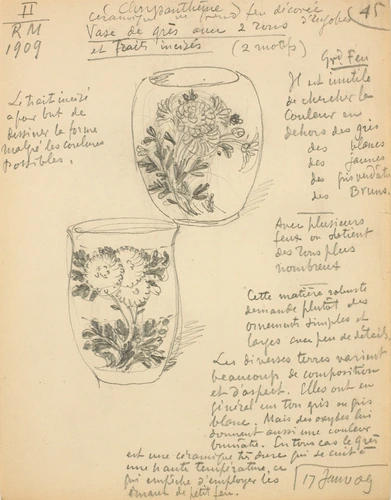 II
RM
1909
Chrysanthème
céramique de grand feu décorée
Vase de grès avec 2 tons d'engobes
et traits incisés (2 motifs)
45
Le trait incisé
a pour but de
dessiner la forme
malgré les coulures
possibles.
Grd Feu
Il est inutile
de chercher la
couleur en
dehors des gris
des blancs
des jaunes
des gris verdâtres
des Bruns.
Avec plusieurs
feux on obtient
des tons plus
nombreux
Cette matière robuste
demande plutôt des
ornements simples et
larges avec peu de détails.
Les diverses terres varient
beaucoup de composition
et d'aspect. Elles ont en
général un ton gris ou gris
blanc. Mais des oxydes lui
donnent aussi une couleur
brunâtre. En tous cas le grès
est une céramique très dure qui se cuit à
une haute température, ce
qui empêche d'employer les
émaux de petit feu.
17 Janv 09